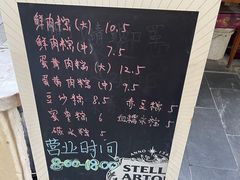 鲜肉粽(大) 10.5
鲜肉粽(中) 7.5
蛋黄肉粽(大) 12.5
蛋黄肉粽(中) 9.5
豆沙粽 8.5 赤豆粽 5
蜜枣粽 6 血糯米粽 5
碱水粽 5
营业时间
8:00-18:00
ANNO
STELL
ARTOI